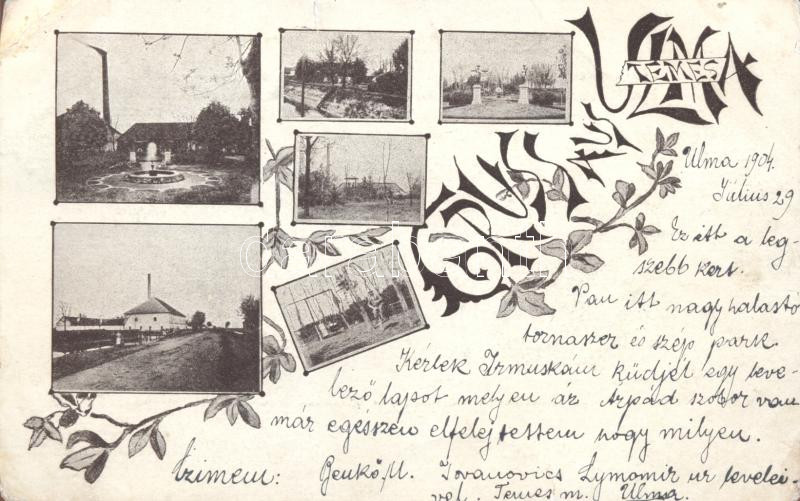 ULMA
TEMES M.
GRUSS AUS
Ulma 1904.
Július 29
Ez itt a leg-
szebb kert.
Van itt nagy halastó
tornaszer és szép park
Kérlek Irmuskám küdjél egy leve-
lező lapot melyen az Arpád szobor van
már egészen elfelejtettem hogy milyen.
Czimem: Benkő M. Jovanovics Lymomir ur levelei-
vel. Temes m. Ulma.